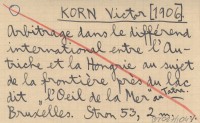 KORN Victor [1906]
Arbitrage dans le différend
international entre l'Au-
triche et la Hongrie au sujet
de la frontière près du lac
dit „l'Oeil de la Mer" à Tatra.
Bruxelles. Stron 55, 2